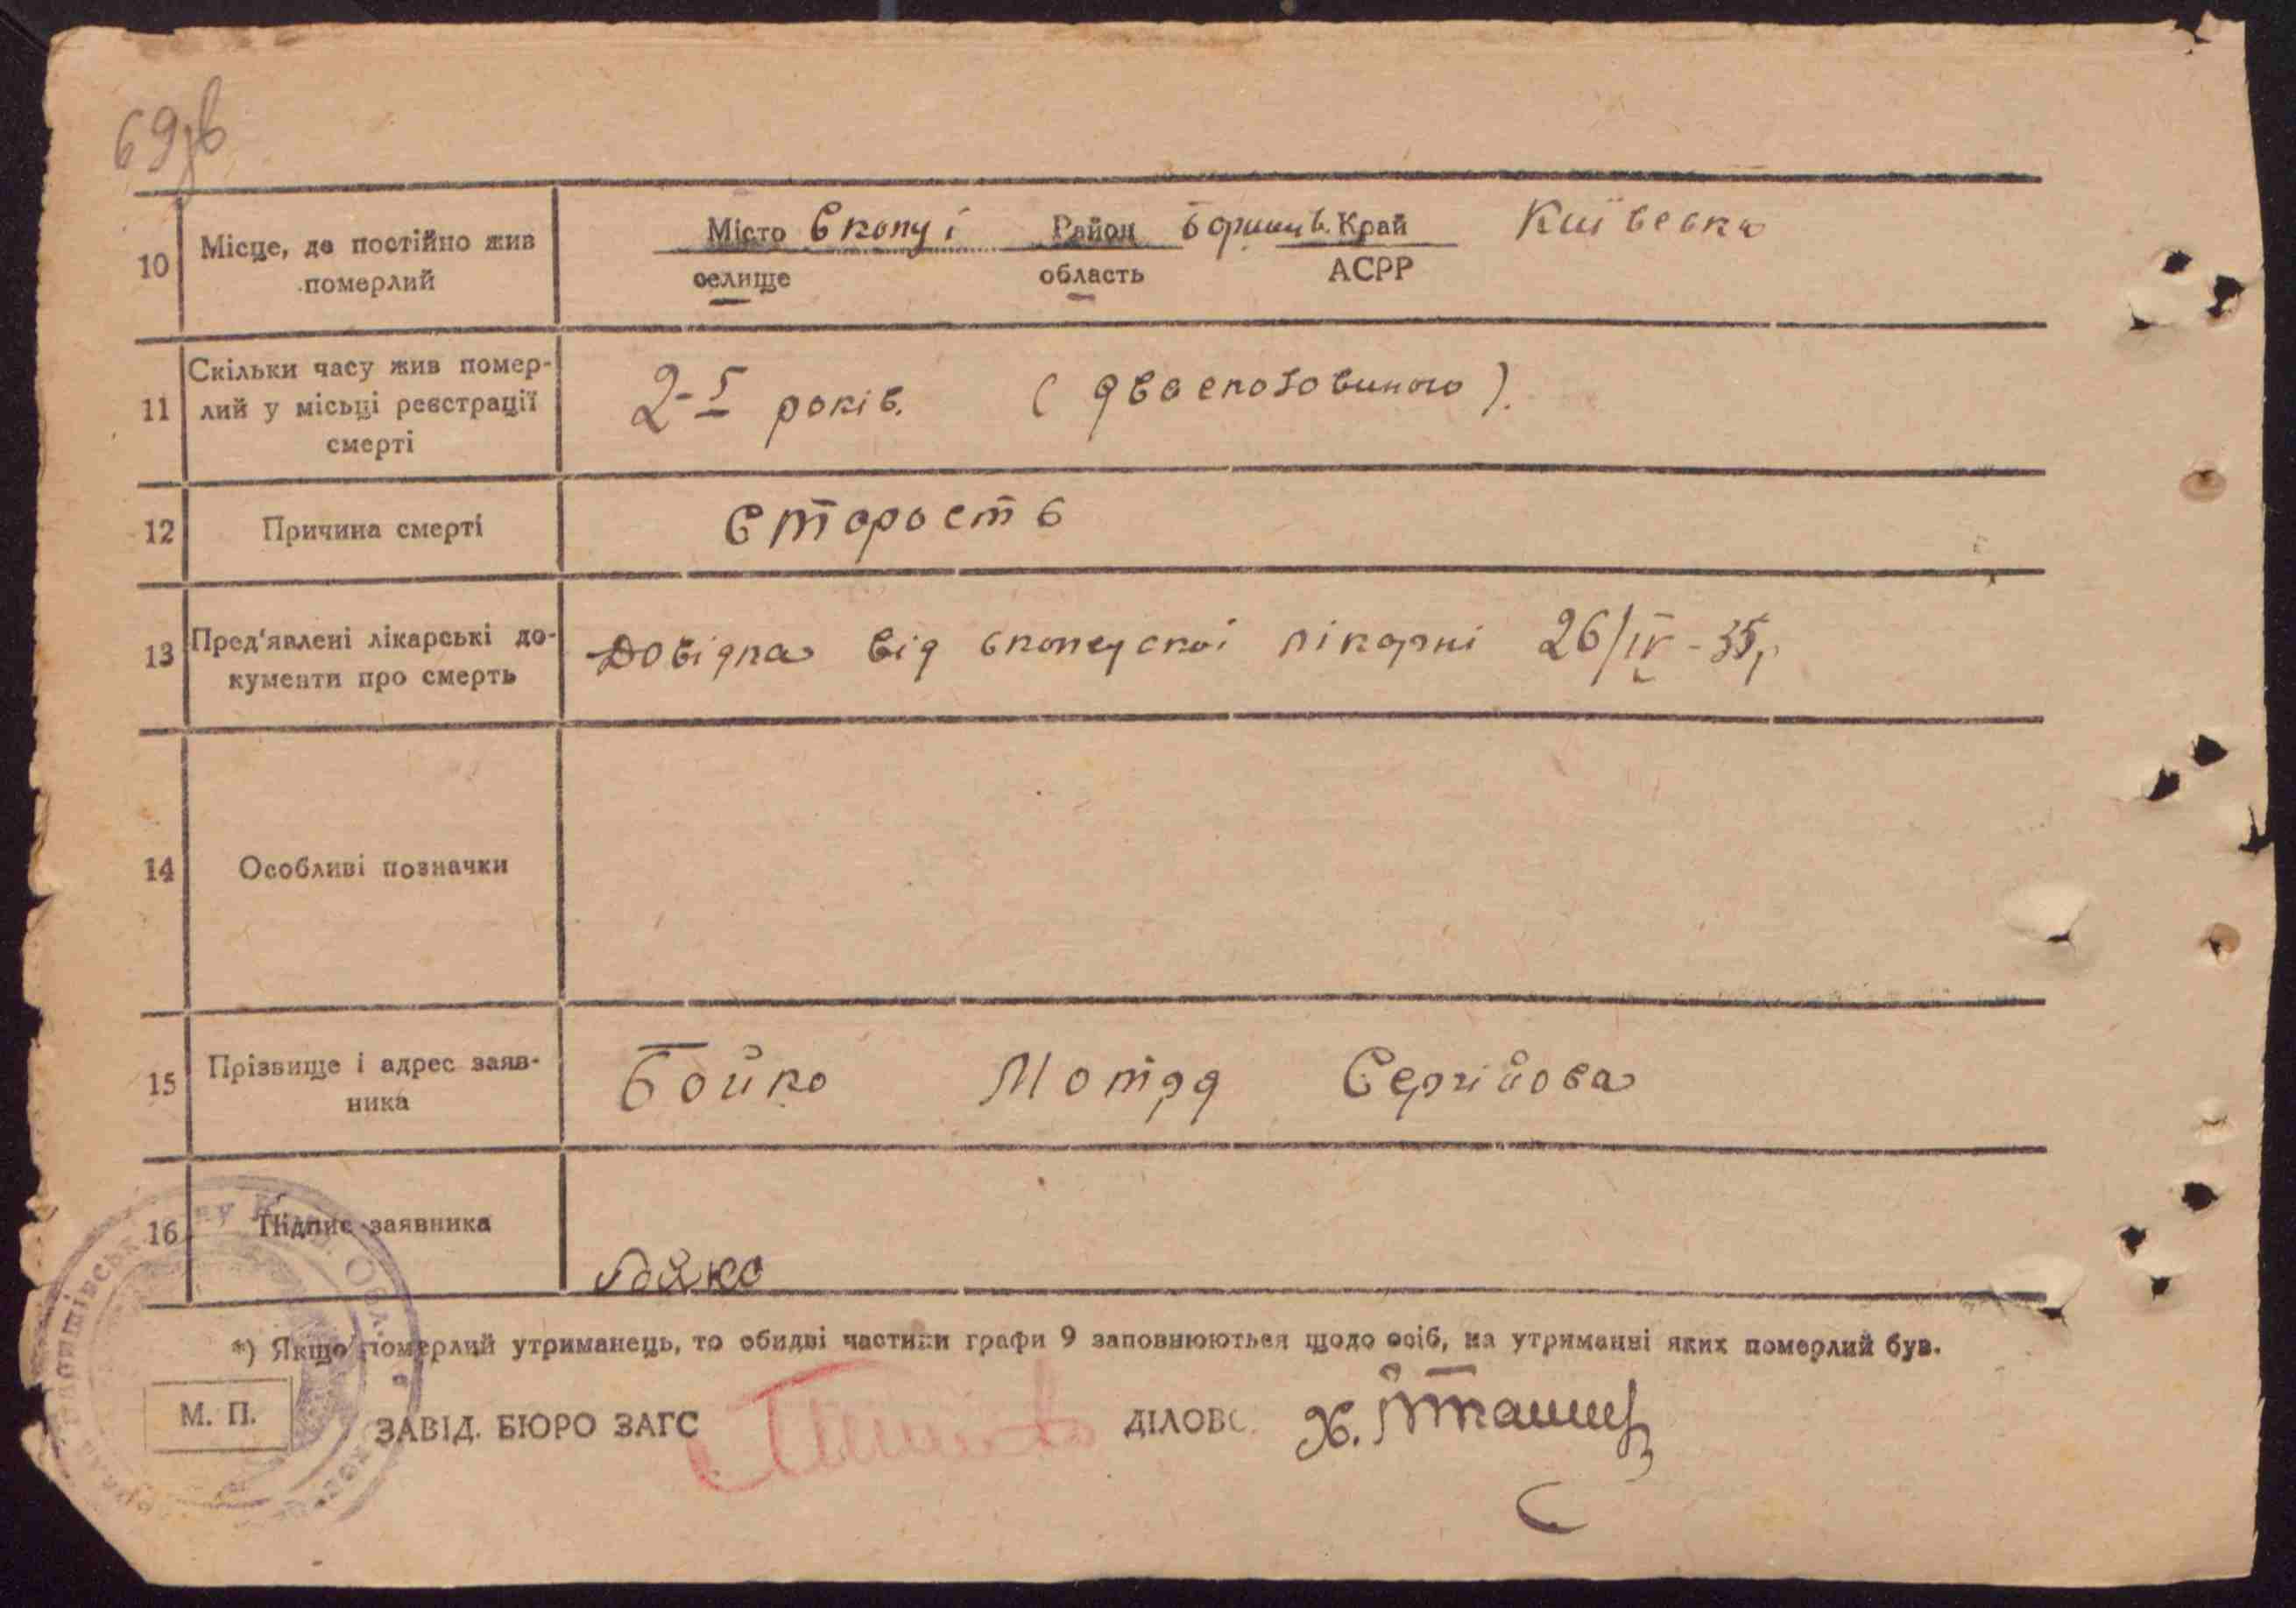 69зв
10 Місце, де постійно жив померлий
Місто Скопці Район Боришп. Край Київська
селище область АСРР
11 Скільки часу жив помер-
лий у місьці реєстрації
смерті
2-5 років. (двасполовиною).
12 Причина смерті
Старость
13 Пред'явлені лікарські до-
кументи про смерть
Довідка від скопецької лікарні 26/IV-35р
14 Особливі позначки
15 Прізвище і адрес заяв-
ника
Бойко Мотря Сергійова
16 Підпис заявника
Бойко
*) Якщо померлий утриманець, то обидві частини графи 9 заповнюються щодо осіб, на утриманні яких померлий був.
М. П.
ЗАВІД. БЮРО ЗАГС
ДІЛОВС.